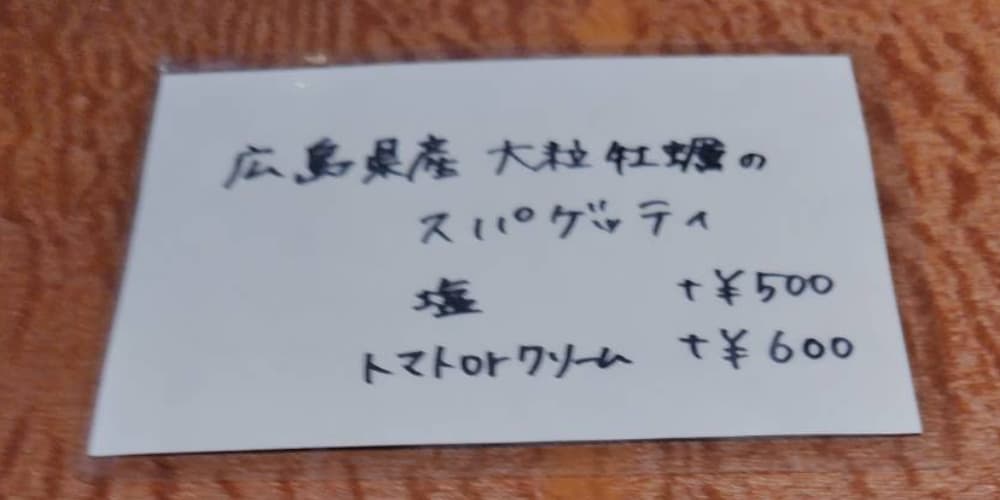 広島県産 大粒牡蠣の
スパゲッティ
塩 +¥500
トマトorクリーム +¥600